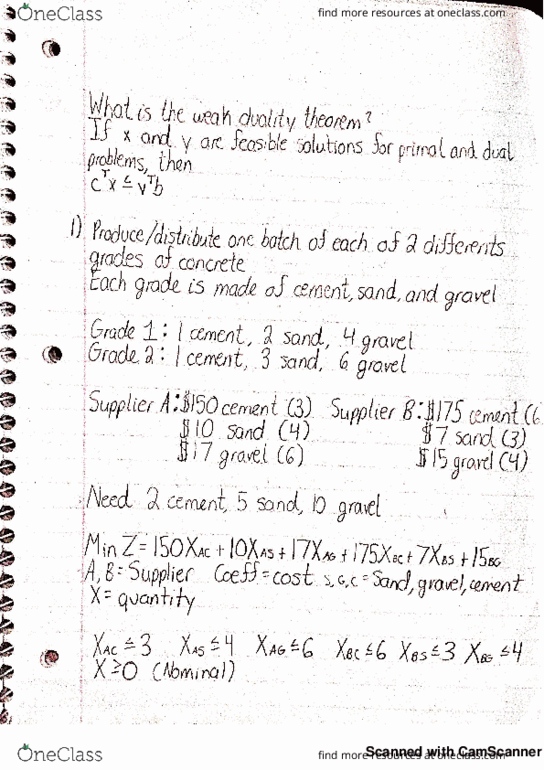 OneClass
find more resources at oneclass.com
What is the weak duality theorem?
If x and y are feasible solutions for primal and dual
problems, then
cᵀx ≤ yᵀb
1) Produce/distribute one batch of each of 2 differents
grades of concrete
Each grade is made of cement, sand, and gravel
Grade 1: 1 cement, 2 sand, 4 gravel
Grade 2: 1 cement, 3 sand, 6 gravel
Supplier A: $150 cement (3) Supplier B: $175 cement (6
$10 sand (4) $7 sand (3)
$17 gravel (6) $15 gravel (4)
Need 2 cement, 5 sand, 10 gravel
Min Z = 150XAC + 10XAS + 17XAG + 175XBC + 7XBS + 15BG
A, B = Supplier Coeff = cost S,G,C = Sand, gravel, cement
X = quantity
XAC ≤ 3 XAS ≤ 4 XAG ≤ 6 XBC ≤ 6 XBS ≤ 3 XBG ≤ 4
X ≥ 0 (Nominal)
OneClass
find more resources at oneclass.com
Scanned with CamScanner